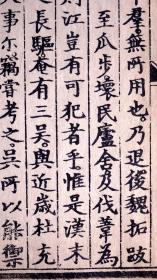 羣無所用也乃退後魏拓跋
至瓜步壞民廬舍及伐葦爲
則江豈有可犯者乎惟是漢末
長驅奄有三吳與近歲杜充
事尓竊嘗考之吳所以能禦